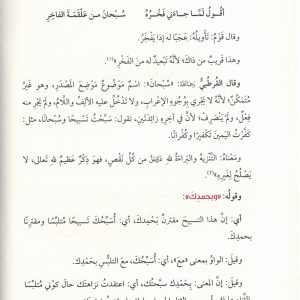 أَقُولُ لَمَّا جاءَني فَخْرُهُ سُبْحانَ مَن عَلْقَمَةَ الفَاخِرِ
وقال قَومٌ: تَأْوِيلُهُ: عَجَبًا له إذا يَفْخَرُ.
وهذا قَريبٌ مِن ذاكَ؛ لأنَّهُ تَبْعيدٌ له مِنَ الفَخْرِ(١).
وقال القُرطُبيُّ رَحِمَهُ اللهُ: «سُبْحانَ»: اسمٌ مَوْضُوعٌ مَوْضِعَ المَصْدَرِ، وهو غَيرُ
مُتَمَكِّنٍ؛ لأنَّهُ لا يَجْرِي بِوُجُوهِ الإعْرابِ، ولا تَدْخُلُ عَلَيهِ الألِفُ واللَّامُ، ولَمْ يَجْرِ مِنه
فِعْلٌ، ولَمْ يَنْصَرِفْ؛ لأنَّ في آخِرِهِ زائِدَتَينِ، تقول: سَبَّحْتُ تَسْبِيحًا وسُبْحانًا، مثل:
كَفَّرْتُ اليَمينَ تَكْفِيرًا وكُفْرانًا.
ومَعْناهُ: التَّنْزِيهُ والبَراءَةُ لله عَزَّوَجَلَّ مِن كُلِّ نَقْصٍ، فهو ذِكْرٌ عَظيمٌ لله تعالى، لا
يَصْلُحُ لِغَيرِهِ(٢).
وقولُه: «وبِحَمدِكَ»:
أي: إنَّ هذا التسبيحَ مقترنٌ بحَمْدِكَ، أي: أُسَبِّحُكَ تَسبيحًا مُتلبِّسًا ومقترنًا
بحَمدِكَ.
وقيلَ: الواوُ بمعنى «مع»، أي: أُسَبِّحُكَ، مع التلبُّسِ بحَمْدِكَ.
وقيلَ: المعنى: بِحَمدِكَ سبَّحتُكَ، أي: اعتقدتُ نزاهتَكَ حالَ كوني مُتلبِّسًا